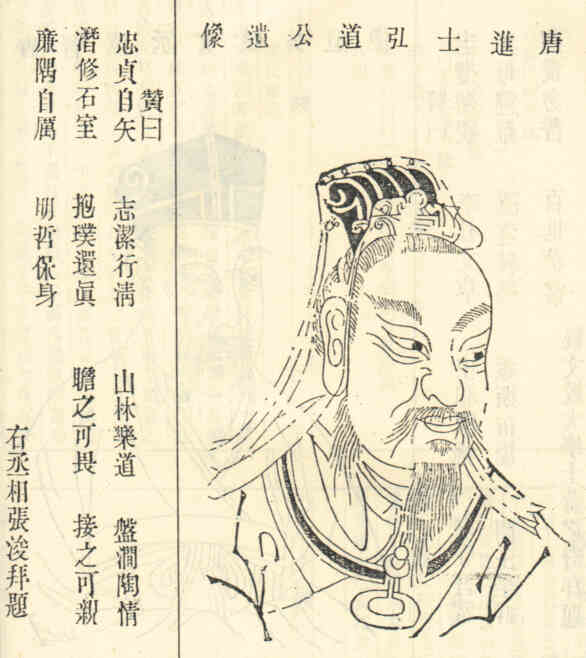 唐進士弘道公遺像
贊曰
忠貞自矢 志潔行清 山林樂道 盤澗陶情
潛修石室 抱璞還眞 瞻之可畏 接之可親
廉隅自厲 明哲保身
右丞相張浚拜題